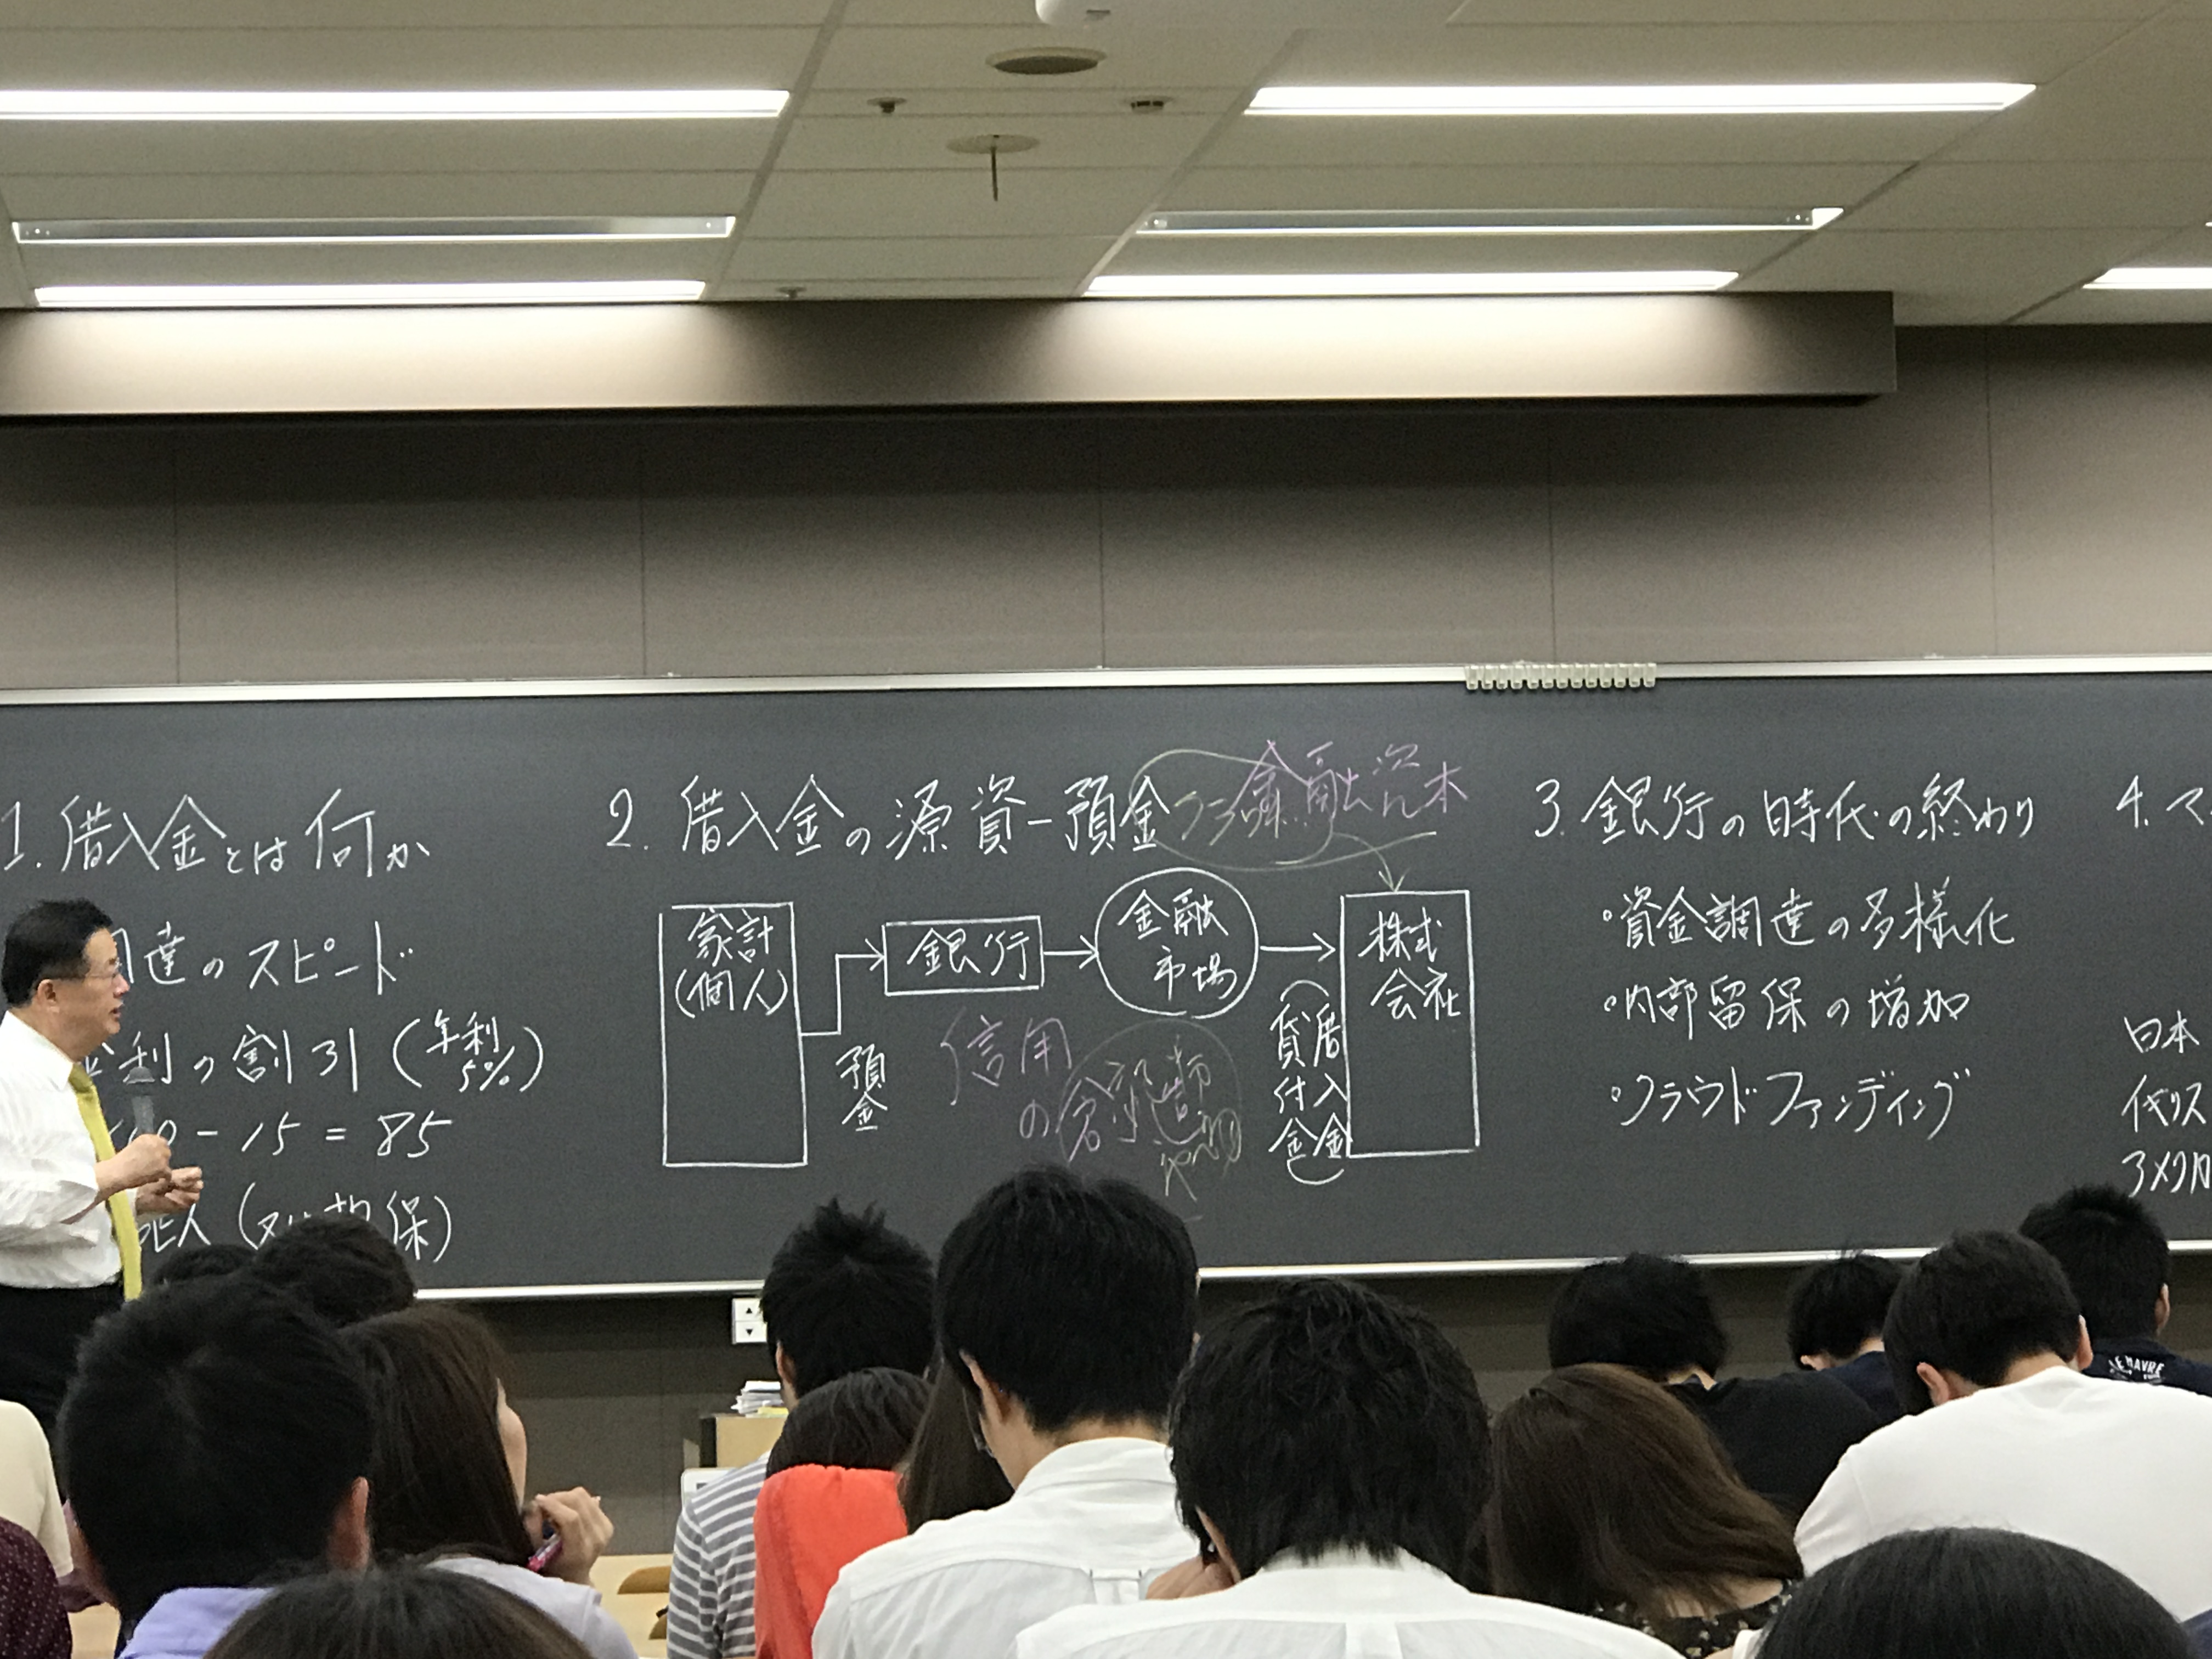 1. 借入金とは何か
達のスピード
利の割引(年利5%)
- 15 = 85
保)
2. 借入金の源資-預金
金融資本
家計
(個人)
預金
銀行
金融
市場
信用
の創造
貸付金
借入金
株式
会社
3. 銀行の時代の終わり
・資金調達の多様化
・内部留保の増加
・クラウドファンディング
4. マ
日本
イギリス
アメリカ
LE HAVRE